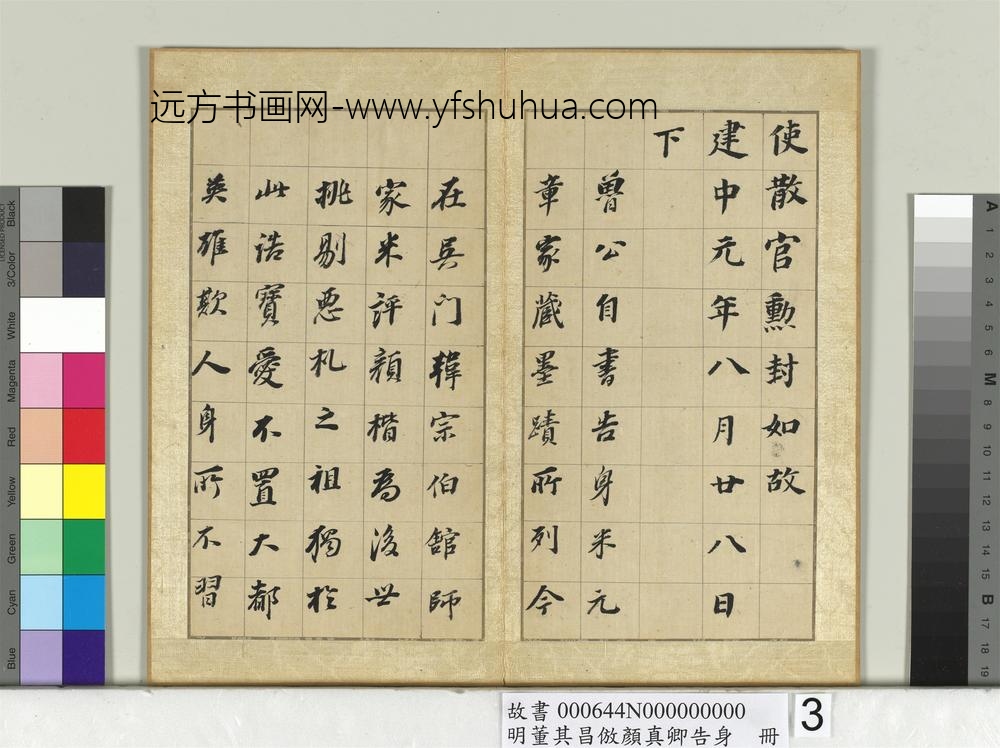 远方书画网-www.yfshuhua.com
使散官勳封如故
建中元年八月廿八日
下
魯公自書告身米元
章家藏墨蹟所列今
在吳門韓宗伯館師
家米評顏楷為後世
挑剔惡札之祖獨於
此誥寶愛不置大都
英雄欺人身所不習
故書 000644N000000000
明董其昌倣顏真卿告身 冊
3
Black
3/Color
White
Magenta
Red
Yellow
Green
Cyan
Blue
A
1
2
3
4
5
6
M
8
9
10
11
12
13
14
15
B
17
18
19